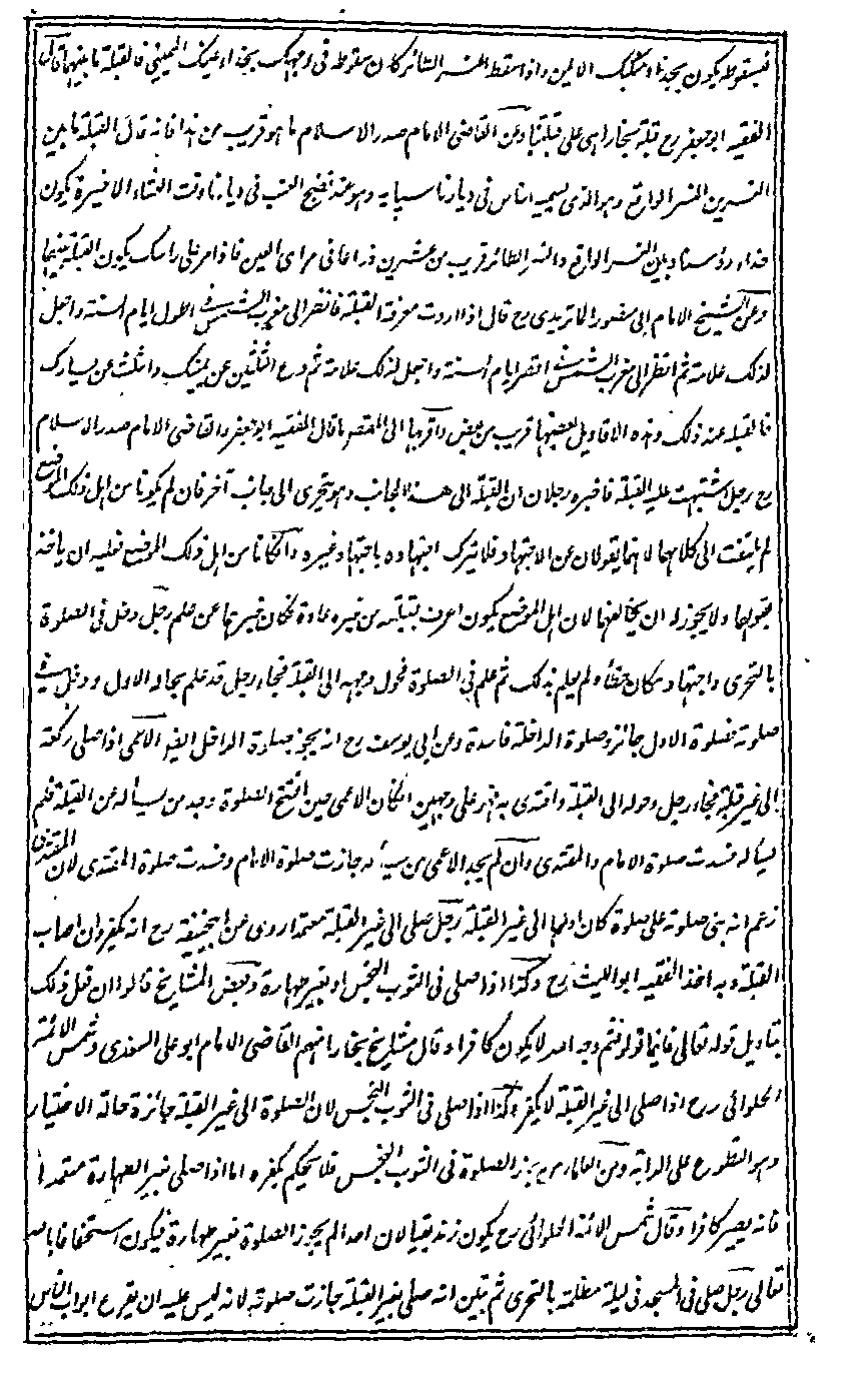 فسقوطه يكون بحذاء منكبك الايمن واذا سقط النسر الطائر كان سقوطه فى وجهك بحذاء عينك اليمنى فالقبلة ما بينهما قال
الفقيه ابو جعفر رح قبلة بخارا هى على قبلتنا وعن القاضى الامام صدر الاسلام ما هو قريب من هذا فانه قال القبلة ما بين
النسرين النسر الواقع وهو الذى يسميه الناس فى ديارنا سپايه وهو عند نضج العنب فى ديارنا وقت العشاء الاخيرة يكون
حذاء رؤسنا وبين النسر الواقع والنسر الطائر قريب من عشرين ذراعا فى مراى العين فاذا مر على راسك يكون القبلة بينهما
وعن الشيخ الامام ابى منصور الماتريدى رح قال اذا اردت معرفة القبلة فانظر الى مغرب الشمس فى اطول ايام السنة واجعل
لذلك علامة ثم انظر الى مغرب الشمس فى اقصر ايام السنة واجعل لذلك علامة ثم دع الثلثين عن يمينك والثلث عن يسارك
فالقبلة عند ذلك وهذه الاقاويل بعضها قريب من بعض واقربها الى المقصود ما قال الفقيه ابو جعفر والقاضى الامام صدر الاسلام
رح رجل اشتبهت عليه القبلة فاخبره رجلان ان القبلة الى هذا الجانب وهو يتحرى الى جانب آخر فان لم يكونا من اهل ذلك الموضع
لم يلتفت الى كلامهما لانهما يقولان عن الاجتهاد فلا يترك اجتهاده باجتهاد غيره وان كانا من اهل ذلك الموضع فعليه ان ياخذ
بقولهما ولا يجوز له ان يخالفهما لان اهل الموضع يكون اعرف بقبلته من غيره عادة فكان خبرهما عن علم رجل دخل فى الصلوة
بالتحرى واجتهاده كان خطأ ولم يعلم بذلك ثم علم فى الصلوة فحول وجهه الى القبلة فجاء رجل قد علم بحاله الاول ودخل فى
صلوته فصلوة الاول جائز وصلوة الداخلة فاسدة وعن ابى يوسف رح انه يجوز صلوة الداخل ايضا الاعمى اذا صلى ركعة
الى غير قبلة فجاء رجل وحوله الى القبلة واقتدى به فهو على وجهين ان كان الاعمى حين افتتح الصلوة وجد من يسأله عن القبلة فلم
يسأله فسدت صلوة الامام والمقتدى وان لم يجد الاعمى من يسأله جازت صلوة الامام وفسدت صلوة المقتدى لان المقتدى
زعم انه بنى صلوته على صلوة كان اولها الى غير القبلة رجل صلى الى غير القبلة متعمدا روى عن ابى حنيفة رح انه يكفر وان اصاب
القبلة وبه اخذ الفقيه ابو الليث رح وكذا اذا صلى فى الثوب النجس او بغير طهارة وبعض المشايخ قالوا ان فعل ذلك
بتاويل قوله تعالى فاينما تولوا فثم وجه الله لا يكون كافرا وقال مشايخ بخارا منهم القاضى الامام ابو على السغدى وشمس الائمة
الحلوائى رح اذا صلى الى غير القبلة لا يكفر وكذا اذا صلى فى الثوب النجس لان الصلوة الى غير القبلة جائزة حالة الاختيار
وهو التطوع على الدابة ومن العلماء من يجوز الصلوة فى الثوب النجس فلا يحكم بكفره اما اذا صلى بغير الطهارة متعمدا
فانه يصير كافرا وقال شمس الائمة الحلوائى رح يكون زنديقا لان احدا لم يجوز الصلوة بغير طهارة فيكون استخفافا بالله
تعالى رجل صلى فى المسجد فى ليلة مظلمة بالتحرى ثم تبين انه صلى بغير القبلة جازت صلوته لانه ليس عليه ان يقرع ابواب الناس